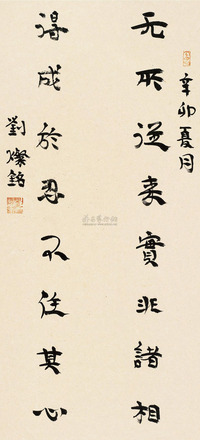 辛卯夏月
无所從来實非諸相
得成於忍不住其心
劉燦銘